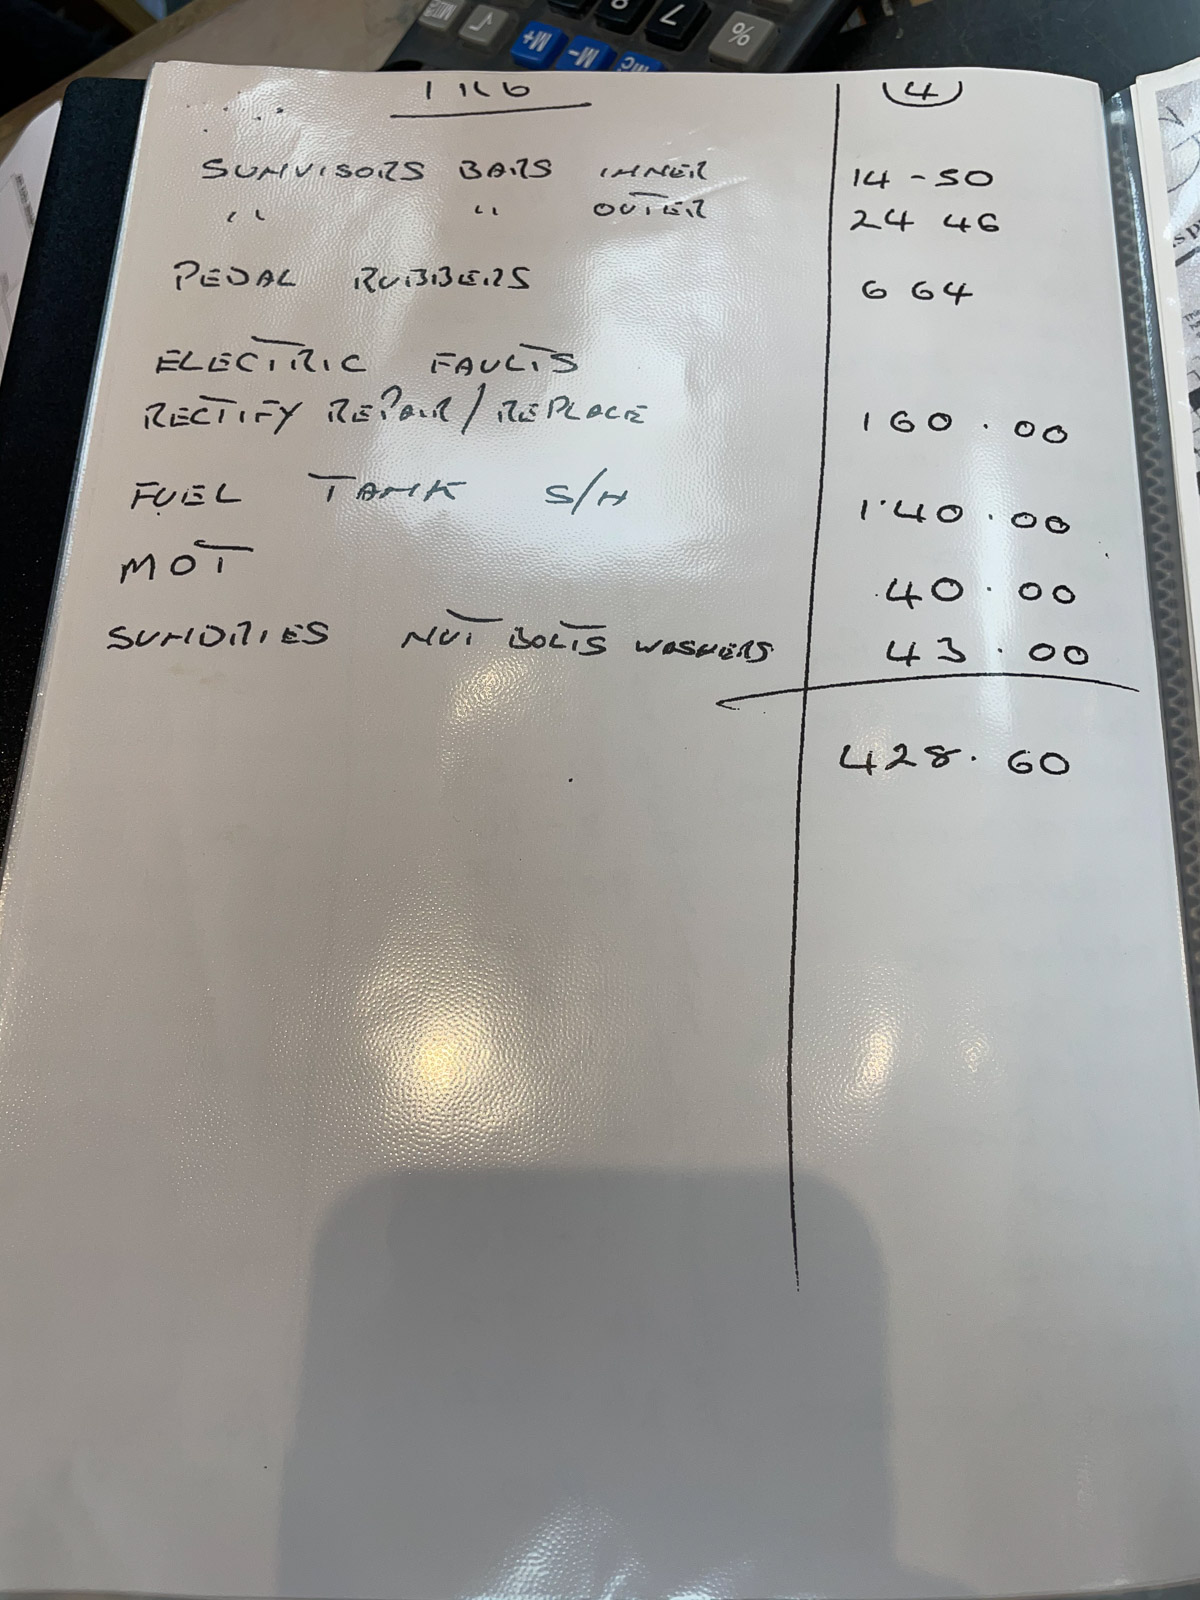 TR6
4
SUNVISORS BARS INNER 14-50
" " OUTER 24 46
PEDAL RUBBERS 6 64
ELECTRIC FAULTS
RECTIFY REPAIR/REPLACE 160.00
FUEL TANK S/H 140.00
MOT 40.00
SUNDRIES NUT BOLTS WASHERS 43.00
428.60
√
%
M+
M-
7
8